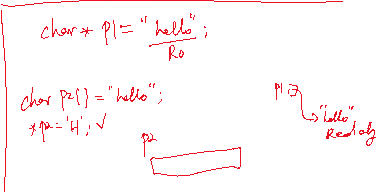 char* p1 = "hello";
Ro
char p2[] = "hello";
*p2 = 'H'; ✓
p2
p1
"hello"
Read only